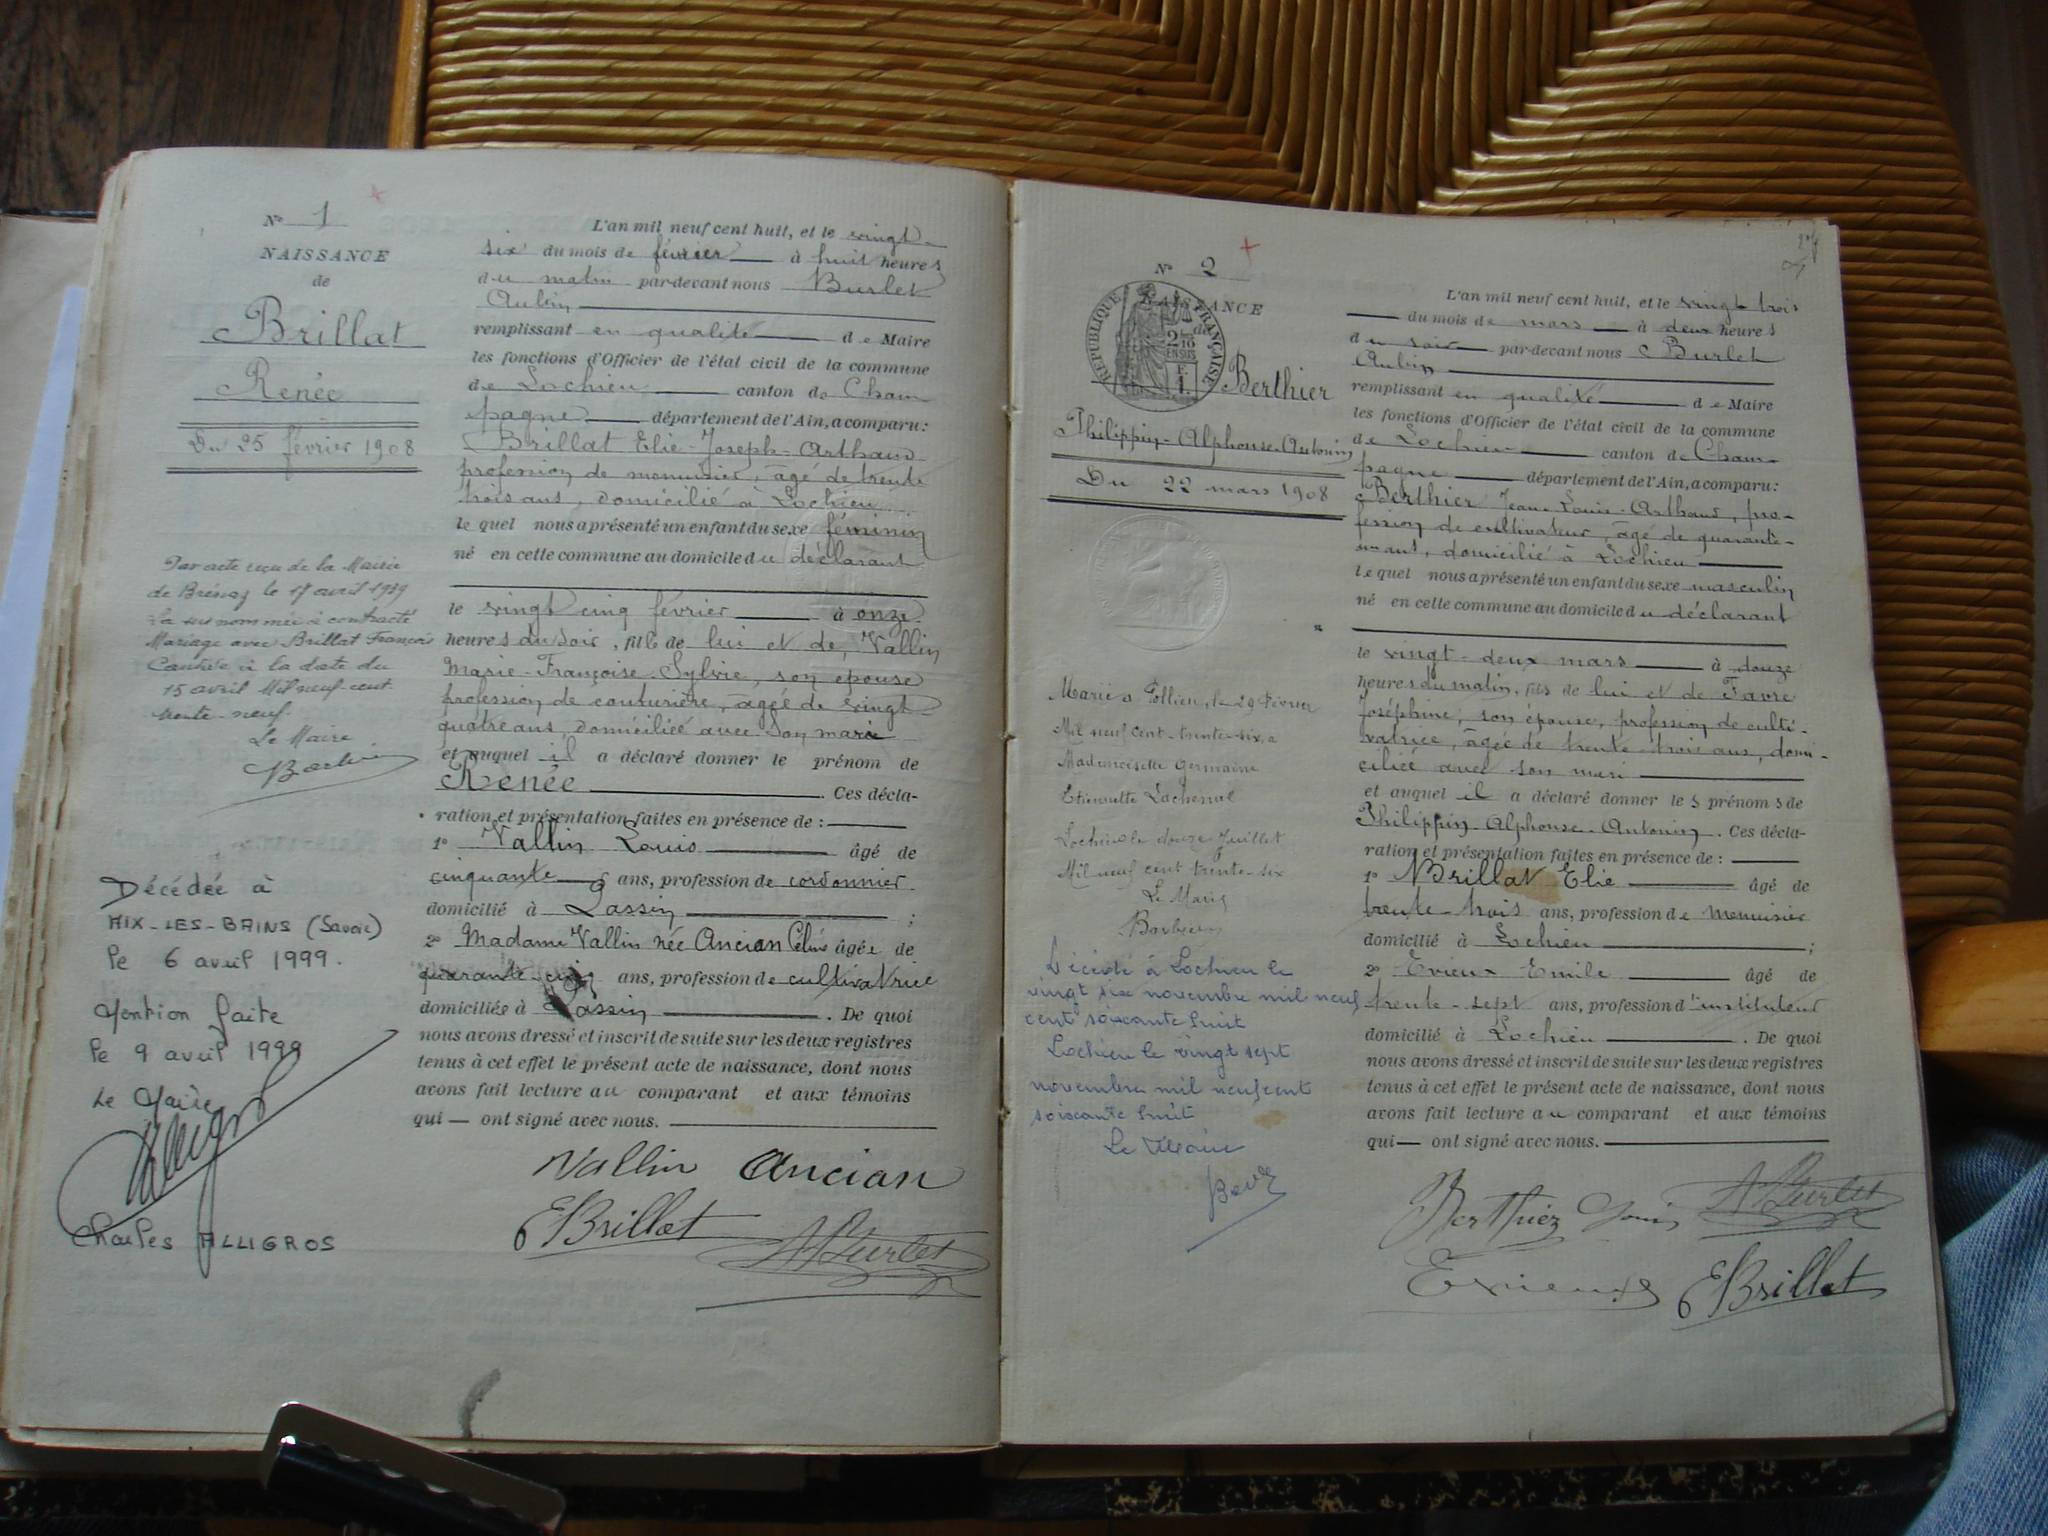 N° 1
NAISSANCE
de
Brillat
Renée
Du 25 février 1908
Par acte reçu de la Mairie
de Brénaz le 17 avril 1939
la sus nommée à contracté
Mariage avec Brillat François
à la date du
15 avril Mil neuf cent
trente-neuf.
Le Maire
Décédée à
AIX-LES-BAINS (Savoie)
le 6 avril 1999.
Mention faite
le 9 avril 1999
Le Maire
Charles ALLIGROS
L'an mil neuf cent huit, et le vingt-
six du mois de février à huit heures
du matin par-devant nous Burlet
Aubin
remplissant en qualité de Maire
les fonctions d'Officier de l'état civil de la commune
de Lochieu canton de Cham-
pagne département de l'Ain, a comparu:
Brillat Elie-Joseph-Arthaud
profession de menuisier, âgé de trente
trois ans, domicilié à Lochieu
le quel nous a présenté un enfant du sexe féminin
né en cette commune au domicile du déclarant
le vingt cinq février à onze
heures du soir, fille de lui et de, Vallin
Marie-Françoise-Sylvie, son épouse
profession de couturière, âgée de vingt-
quatre ans, domiciliée avec son mari
et auquel il a déclaré donner le prénom de
Renée Ces décla-
ration et présentation faites en présence de :
1° Vallin Louis âgé de
cinquante ans, profession de cordonnier
domicilié à Passin ;
2° Madame Vallin née Ancian Céline âgée de
quarante-cinq ans, profession de cultivatrice
domiciliée à Passin . De quoi
nous avons dressé et inscrit de suite sur les deux registres
tenus à cet effet le présent acte de naissance, dont nous
avons fait lecture au comparant et aux témoins
qui — ont signé avec nous.
Vallin Ancian
EBrillat ABurlet
N° 2
NAISSANCE
de
RÉPUBLIQUE FRANÇAISE
2/10 EN SUS
Berthier
Philippin-Alphonse-Antonin
Du 22 mars 1908
Marié à Pollieu, le 29 Février
Mil neuf cent trente-six, à
Mademoiselle Germaine
Etiennette Lachenal
Lochieu le douze Juillet
Mil neuf cent trente-six
Le Maire
Décédé à Lochieu le
vingt six novembre mil neuf
cent soixante huit
Lochieu le vingt sept
novembre mil neuf cent
soixante huit
Le Maire
L'an mil neuf cent huit, et le vingt trois
du mois de mars à deux heures
du soir par-devant nous Burlet
Aubin
remplissant en qualité de Maire
les fonctions d'Officier de l'état civil de la commune
de Lochieu canton de Cham-
pagne département de l'Ain, a comparu:
Berthier Jean-Louis-Arthaud, pro-
fession de cultivateur, âgé de quarante-
un ans, domicilié à Lochieu
le quel nous a présenté un enfant du sexe masculin
né en cette commune au domicile du déclarant
le vingt-deux mars à douze
heures du matin, fils de lui et de Favre
Joséphine, son épouse, profession de culti-
vatrice, âgée de trente-trois ans, domi-
ciliée avec son mari
et auquel il a déclaré donner les prénoms de
Philippin-Alphonse-Antonin. Ces décla-
ration et présentation faites en présence de :
1° Brillat Elie âgé de
trente-trois ans, profession de menuisier
domicilié à Lochieu ;
2° Evieux Emile âgé de
trente-sept ans, profession d'instituteur
domicilié à Lochieu . De quoi
nous avons dressé et inscrit de suite sur les deux registres
tenus à cet effet le présent acte de naissance, dont nous
avons fait lecture au comparant et aux témoins
qui — ont signé avec nous.
Berthier Louis ABurlet
Evieux EBrillat